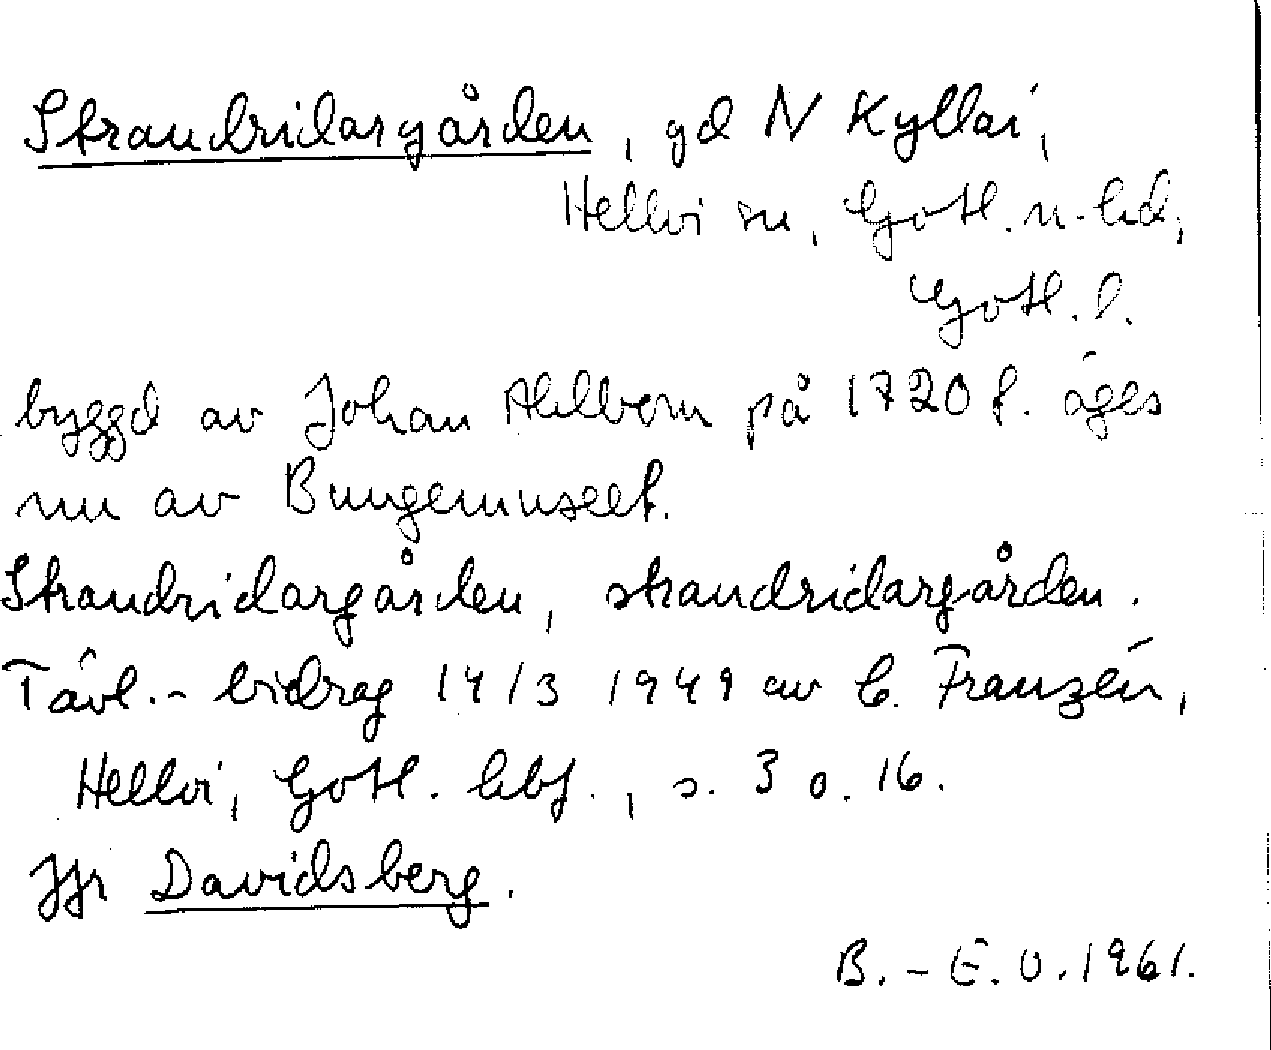 Strandridargården, gd N Kyllai,
Hellvi sn, Gotl. n. hd,
Gotl. l.
byggd av Johan Ahlbom på 1720 t. äges
nu av Bungemuseet.
Strandridargården, strandridargården.
Tävl.- bidrag 14/3 1949 av C. Franzén,
Hellvi, Gotl. hbf., s. 3 o. 16.
Jfr Davidsberg.
B.-E. O. 1961.